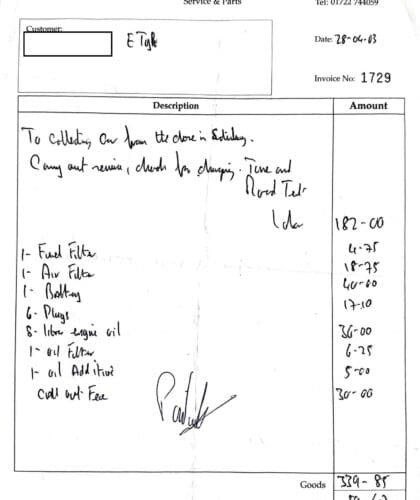 Service & Parts
Tel: 01722 744059
Customer:
E Type
Date: 28-04-03
Invoice No: 1729
Description Amount
To Collecting Car from the close in Salisbury.
Carry out service, check for charging. Tune and
Road Test
Labor 182-00
1- Fuel Filter 4-75
1- Air Filter 18-75
1- Battery 40-00
6- Plugs 17-10
8- litre engine oil 36-00
1- oil Filter 6-25
1- oil Additive 5-00
Call out Fee 30-00
Goods 339-85